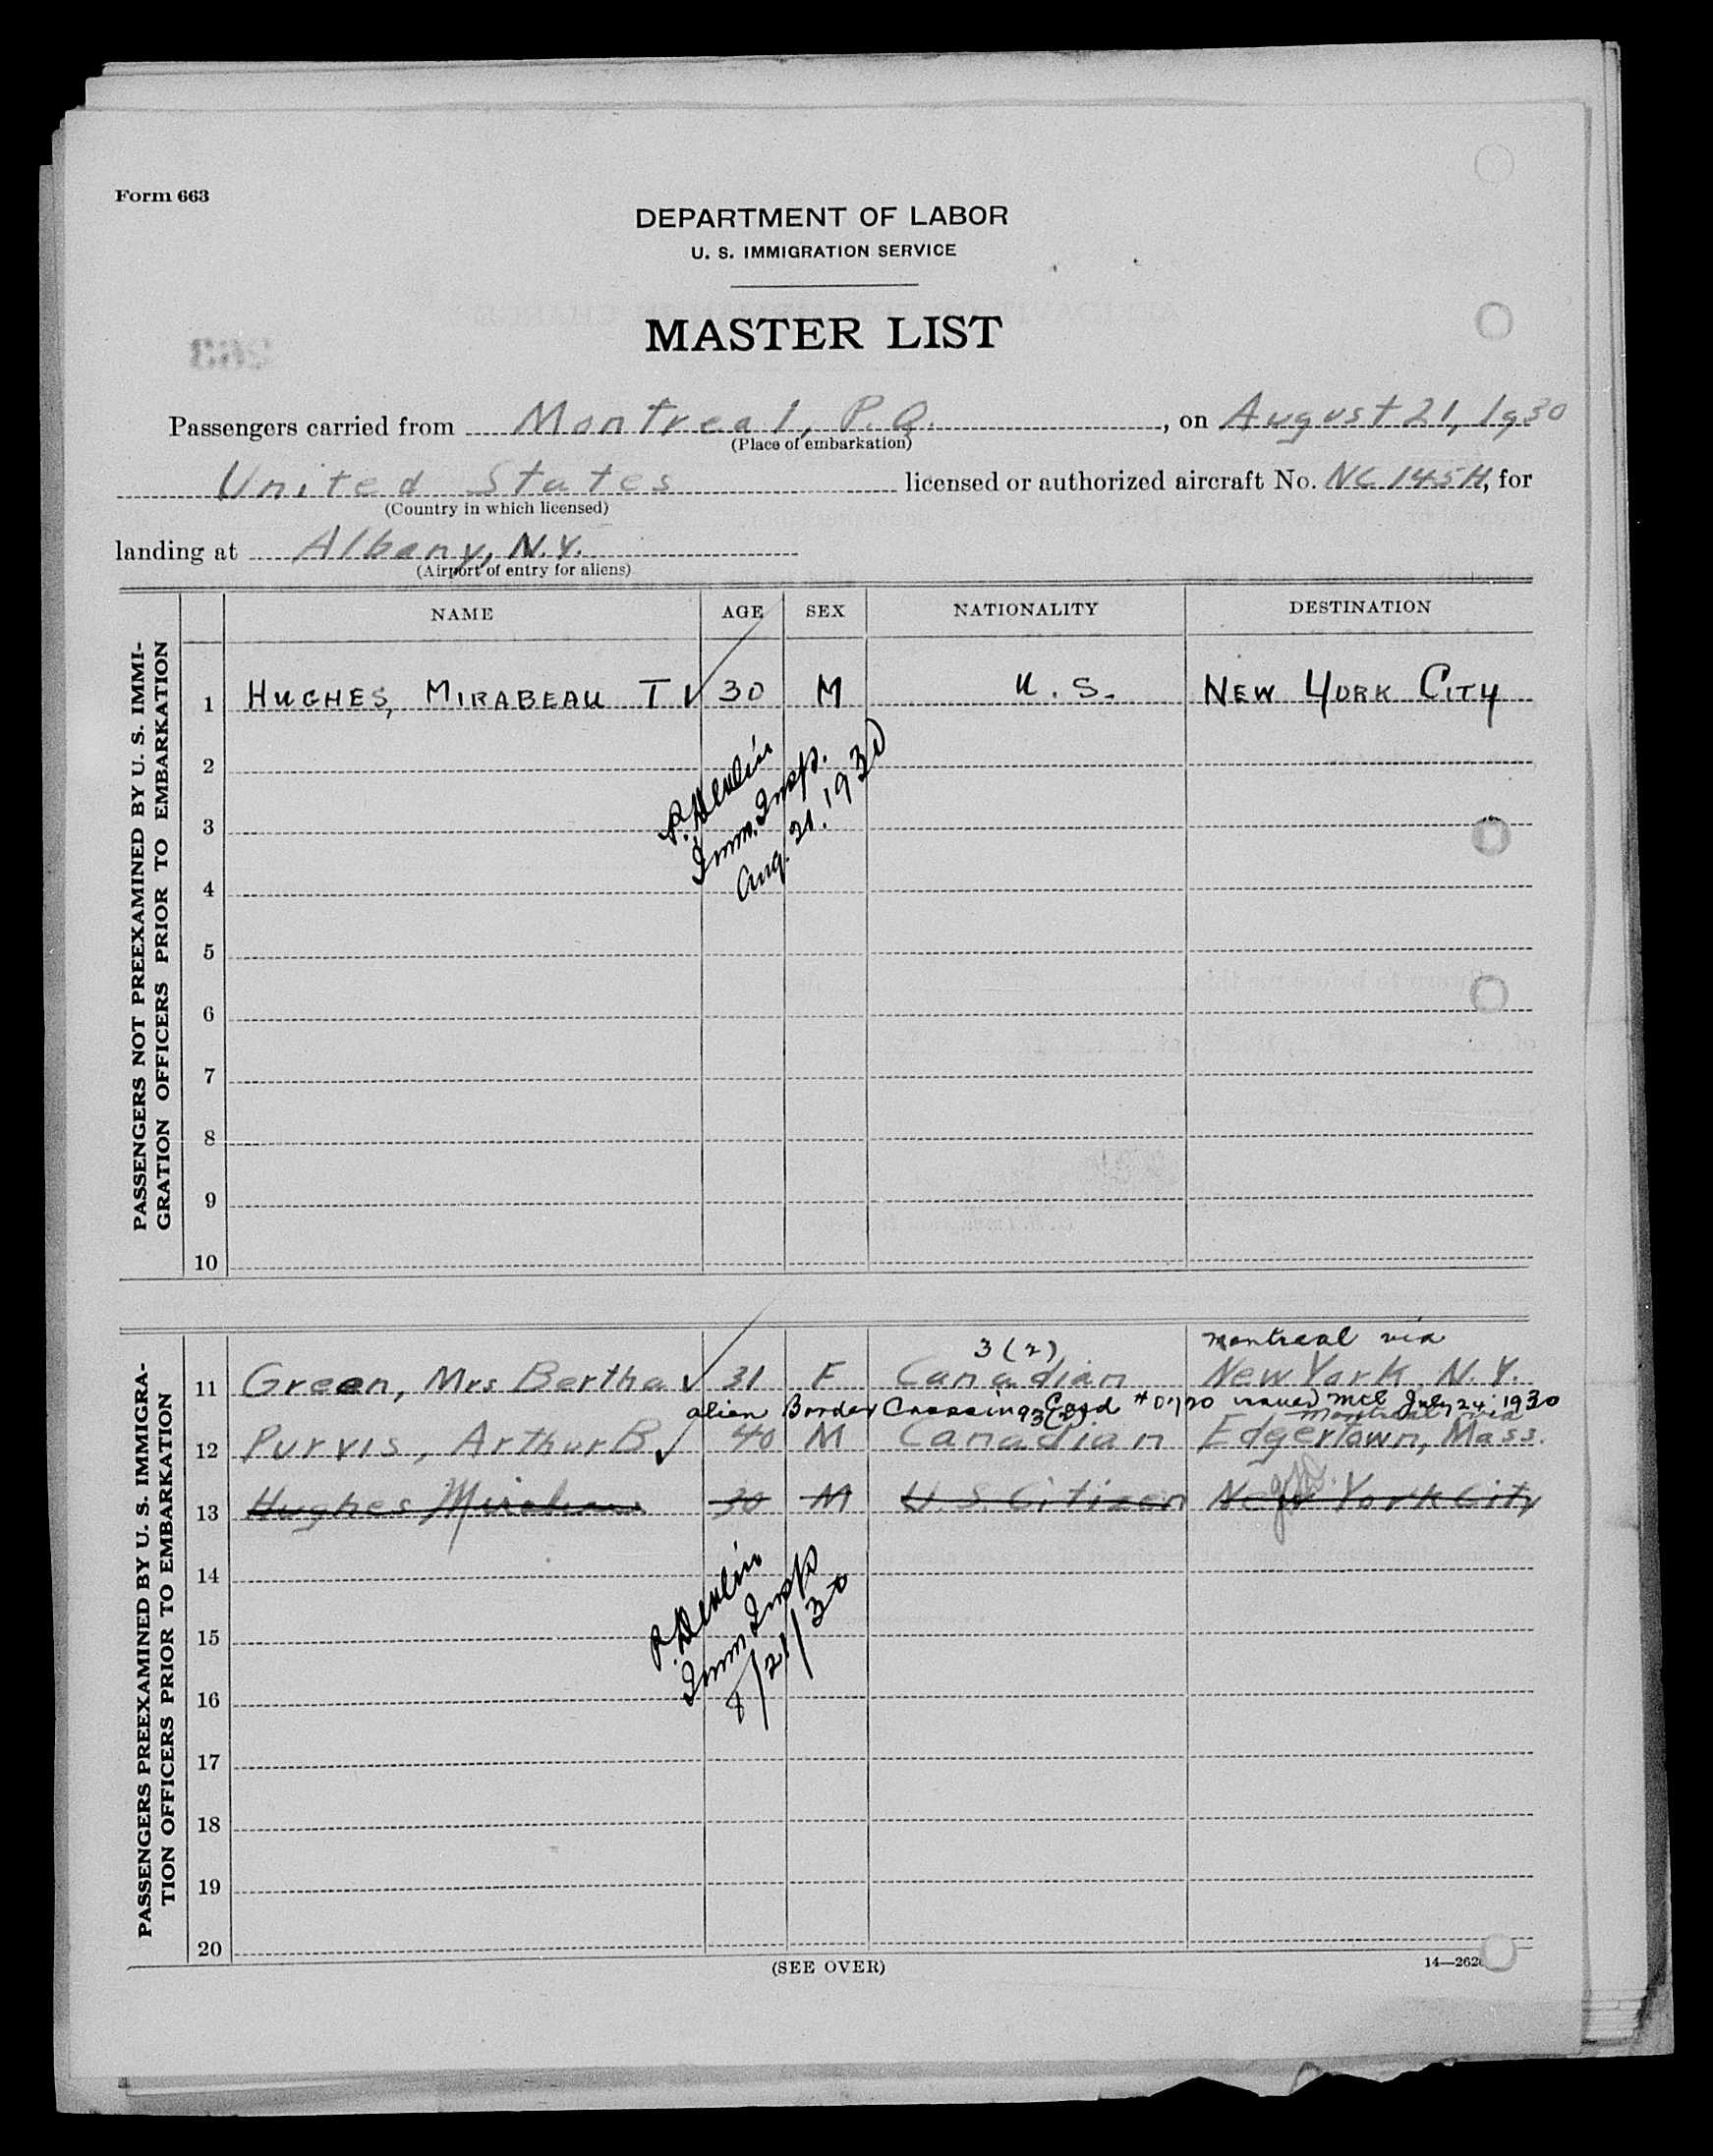 Form 663
DEPARTMENT OF LABOR
U. S. IMMIGRATION SERVICE
MASTER LIST
Passengers carried from Montreal, P.Q., on August 21, 1930
(Place of embarkation)
United States licensed or authorized aircraft No. NC 145H, for
(Country in which licensed)
landing at Albany, N.Y.
(Airport of entry for aliens)
NAME AGE SEX NATIONALITY DESTINATION
PASSENGERS NOT PREEXAMINED BY U. S. IMMI-
GRATION OFFICERS PRIOR TO EMBARKATION
1 HUGHES, MIRABEAU T 30 M U. S. NEW YORK CITY
2
3
4
5
6
7
8
9
10
P. Devlin
Imm. Insp.
Aug. 21. 1930
PASSENGERS PREEXAMINED BY U. S. IMMIGRA-
TION OFFICERS PRIOR TO EMBARKATION
3 (2) Montreal via
11 Green, Mrs Bertha 31 F Canadian New York, N.Y.
alien Border Crossing Card issued Mtl July 24 1930
3(2) Montreal via
12 Purvis, Arthur B 40 M Canadian Edgertown, Mass.
13 Hughes Mirabeau 30 M U. S. Citizen New York City
14
15
16
17
18
19
20
P. Devlin
Imm. Insp
8/21/30
(SEE OVER)